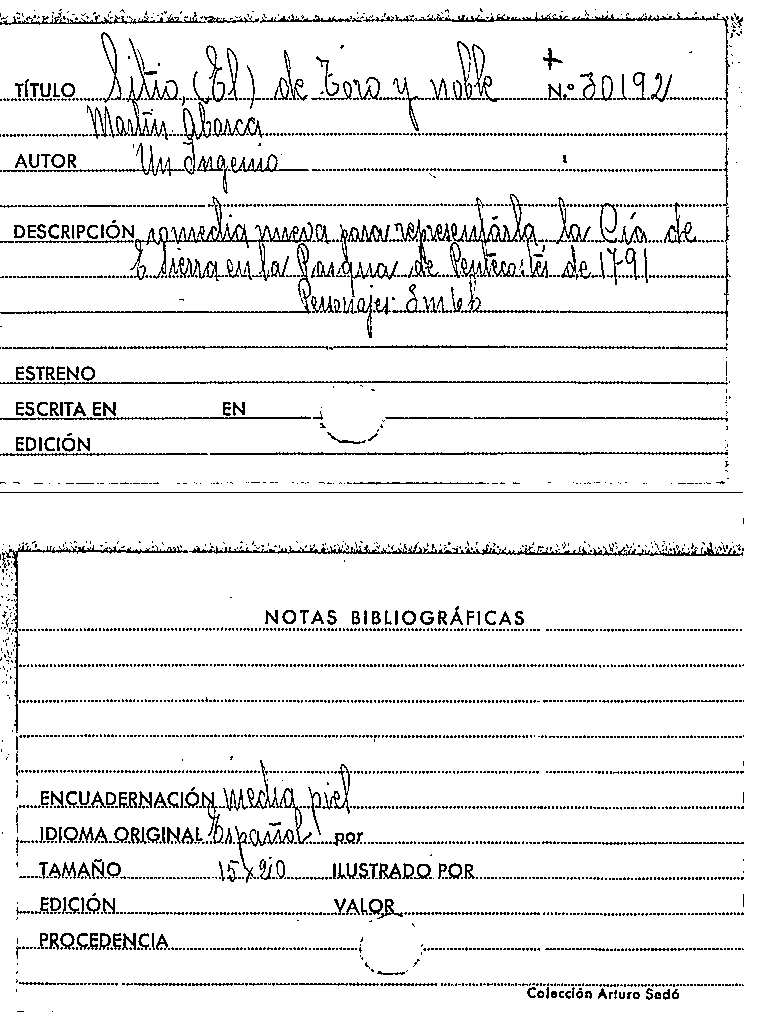 TÍTULO Sitio, (El) de Toro y noble N.º 30192
Martín Abarca
AUTOR Un Ingenio
DESCRIPCIÓN comedia nueva para representarla la Cía de
E Sierra en la Pasqua de Pentecostés de 1791
Personajes:
ESTRENO
ESCRITA EN EN
EDICIÓN
NOTAS BIBLIOGRÁFICAS
ENCUADERNACIÓN media piel
IDIOMA ORIGINAL Español por
TAMAÑO 15x20 ILUSTRADO POR
EDICIÓN VALOR
PROCEDENCIA
Colección Arturo Sedó